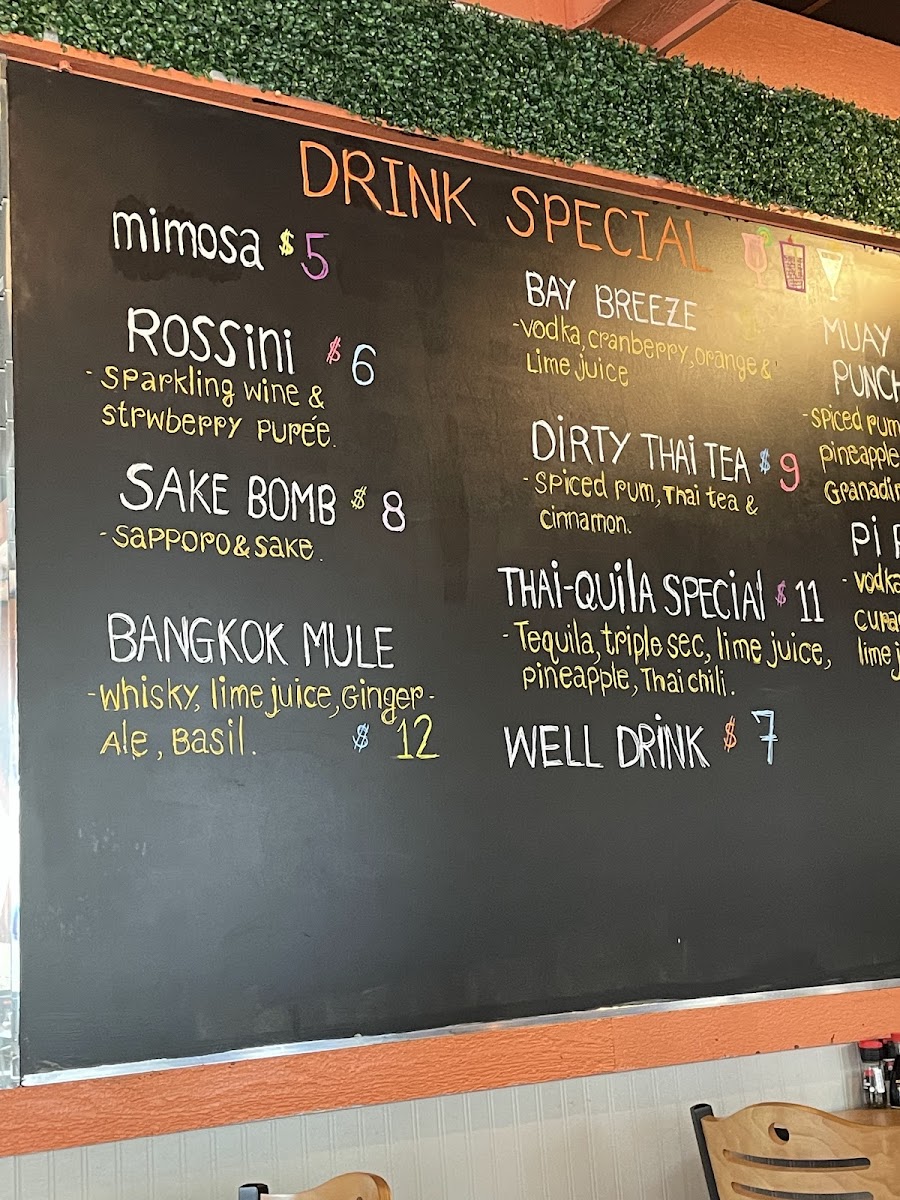 DRINK SPECIAL
mimosa $5
ROSSINI $6
- Sparkling wine &
strwberry purée.
SAKE BOMB $8
- Sapporo & Sake.
BANGKOK MULE
- Whisky, lime juice, Ginger-
Ale, Basil. $12
BAY BREEZE
- Vodka, cranberry, orange &
Lime juice
DIRTY THAI TEA $9
- Spiced rum, Thai tea &
cinnamon.
THAI-QUILA SPECIAL $11
- Tequila, triple sec, lime juice,
pineapple, Thai chili.
WELL DRINK $7
MUAY
PUNCH
- Spiced rum
pineapple
Grenadin
Pi
- vodka
cura
lime j